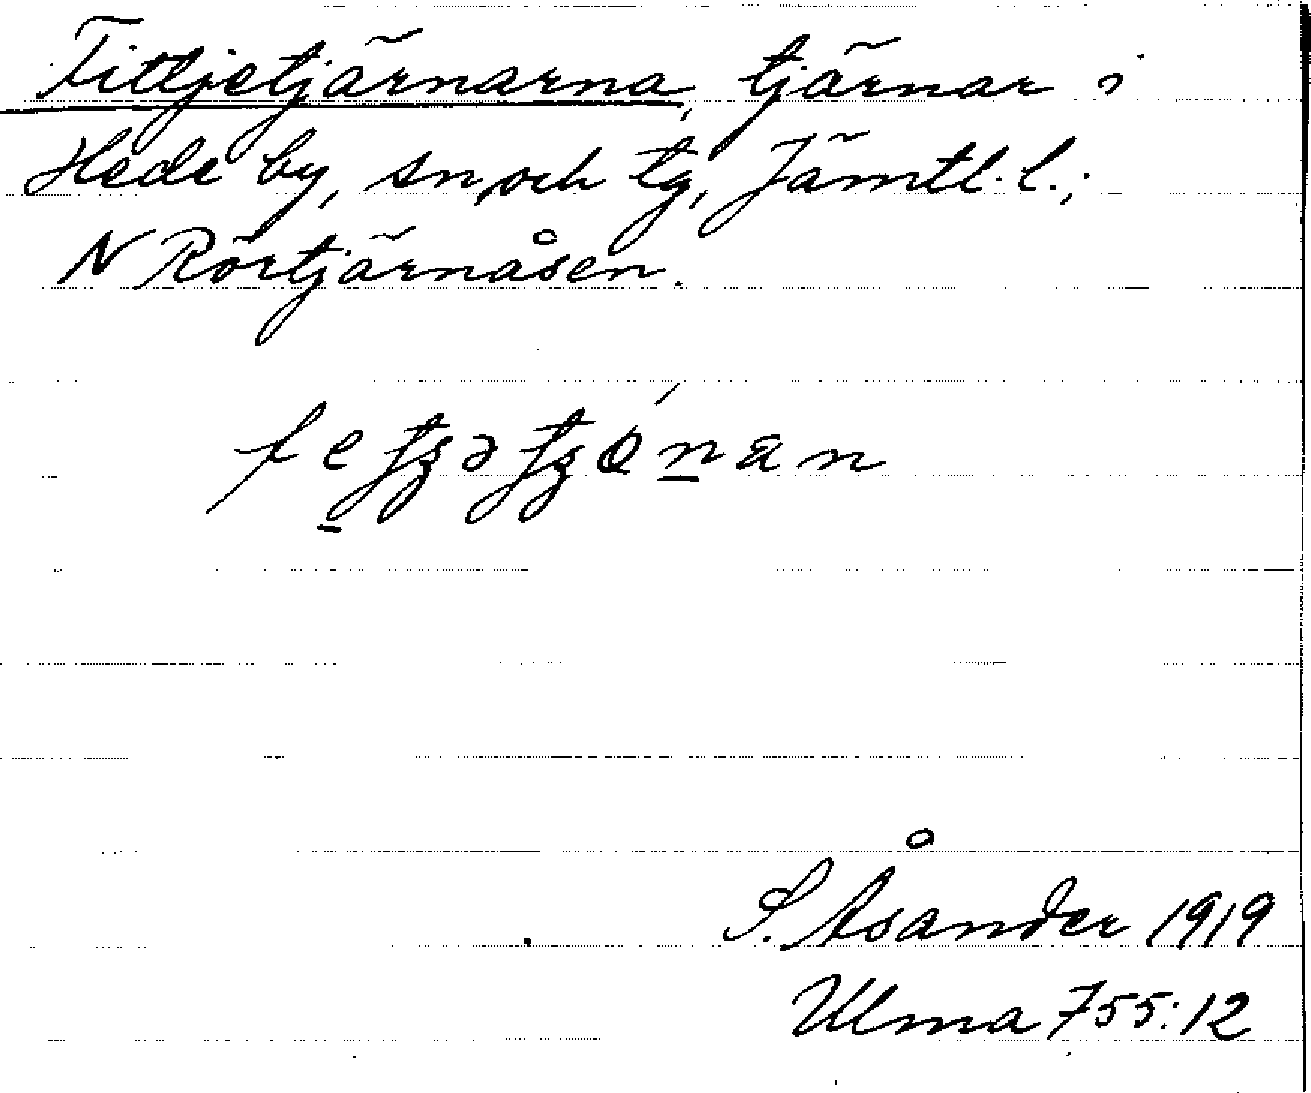 Fittjetjärnarna, tjärnar i
Hede by, sn och tg, Jämtl. l.;
N Rörtjärnåsen.
S. Åsander 1919
Ulma 755:12